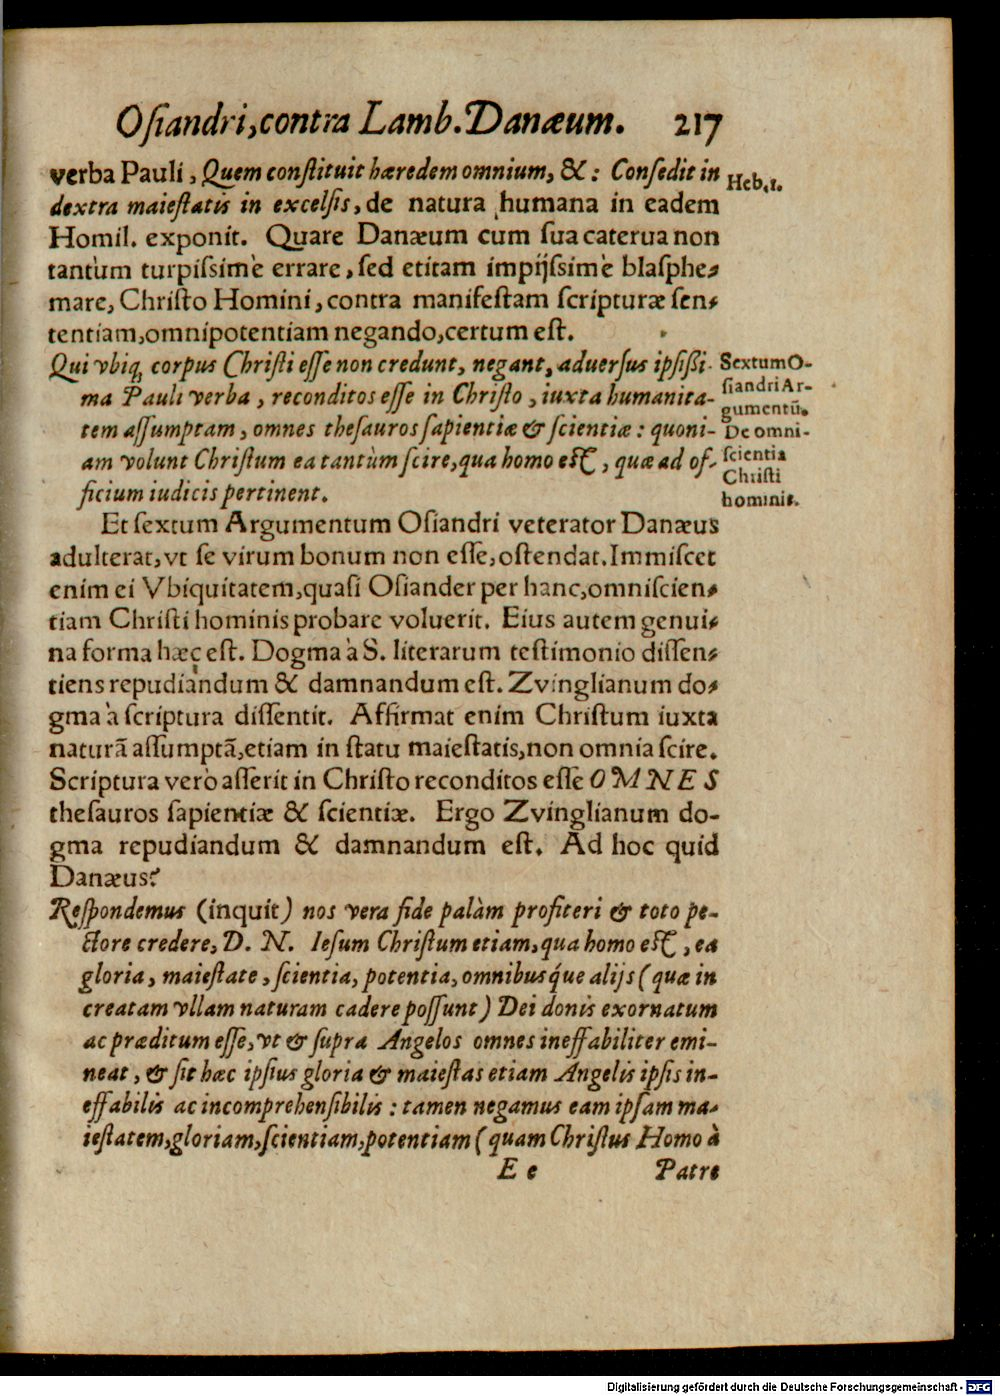 Osiandri, contra Lamb. Danæum. 217
verba Pauli, Quem constituit hæredem omnium, & : Consedit in
Heb. 1.
dextra maiestatis in excelsis, de natura humana in eadem
Homil. exponit. Quare Danæum cum sua caterua non
tantùm turpissimè errare, sed etitam impijssimè blasphe-
mare, Christo Homini, contra manifestam scripturæ sen-
tentiam, omnipotentiam negando, certum est.
Qui vbiq; corpus Christi esse non credunt, negant, aduersus ipsißi-
ma Pauli verba, reconditos esse in Christo, iuxta humanita-
tem assumptam, omnes thesauros sapientiæ & scientiæ : quoni-
am volunt Christum ea tantùm scire, qua homo est, quæ ad of-
ficium iudicis pertinent.
Sextum O-
siandri Ar-
gumentū.
De omni-
scientia
Christi
hominis.
Et sextum Argumentum Osiandri veterator Danæus
adulterat, vt se virum bonum non esse, ostendat. Immiscet
enim ei Vbiquitatem, quasi Osiander per hanc, omniscien-
tiam Christi hominis probare voluerit. Eius autem genui-
na forma hæc est. Dogma à S. literarum testimonio dissen-
tiens repudiandum & damnandum est. Zvinglianum do-
gma à scriptura dissentit. Affirmat enim Christum iuxta
naturā assumptā, etiam in statu maiestatis, non omnia scire.
Scriptura verò asserit in Christo reconditos esse OMNES
thesauros sapientiæ & scientiæ. Ergo Zvinglianum do-
gma repudiandum & damnandum est. Ad hoc quid
Danæus?
Respondemus (inquit) nos vera fide palàm profiteri & toto pe-
ctore credere, D. N. Iesum Christum etiam, qua homo est, ea
gloria, maiestate, scientia, potentia, omnibusq́ue alijs (quæ in
creatam vllam naturam cadere possunt) Dei donis exornatum
ac præditum esse, vt & supra Angelos omnes ineffabiliter emi-
neat, & sit hæc ipsius gloria & maiestas etiam Angelis ipsis in-
effabilis ac incomprehensibilis : tamen negamus eam ipsam ma-
iestatem, gloriam, scientiam, potentiam (quam Christus Homo à
E e Patre
Digitalisierung gefördert durch die Deutsche Forschungsgemeinschaft - DFG